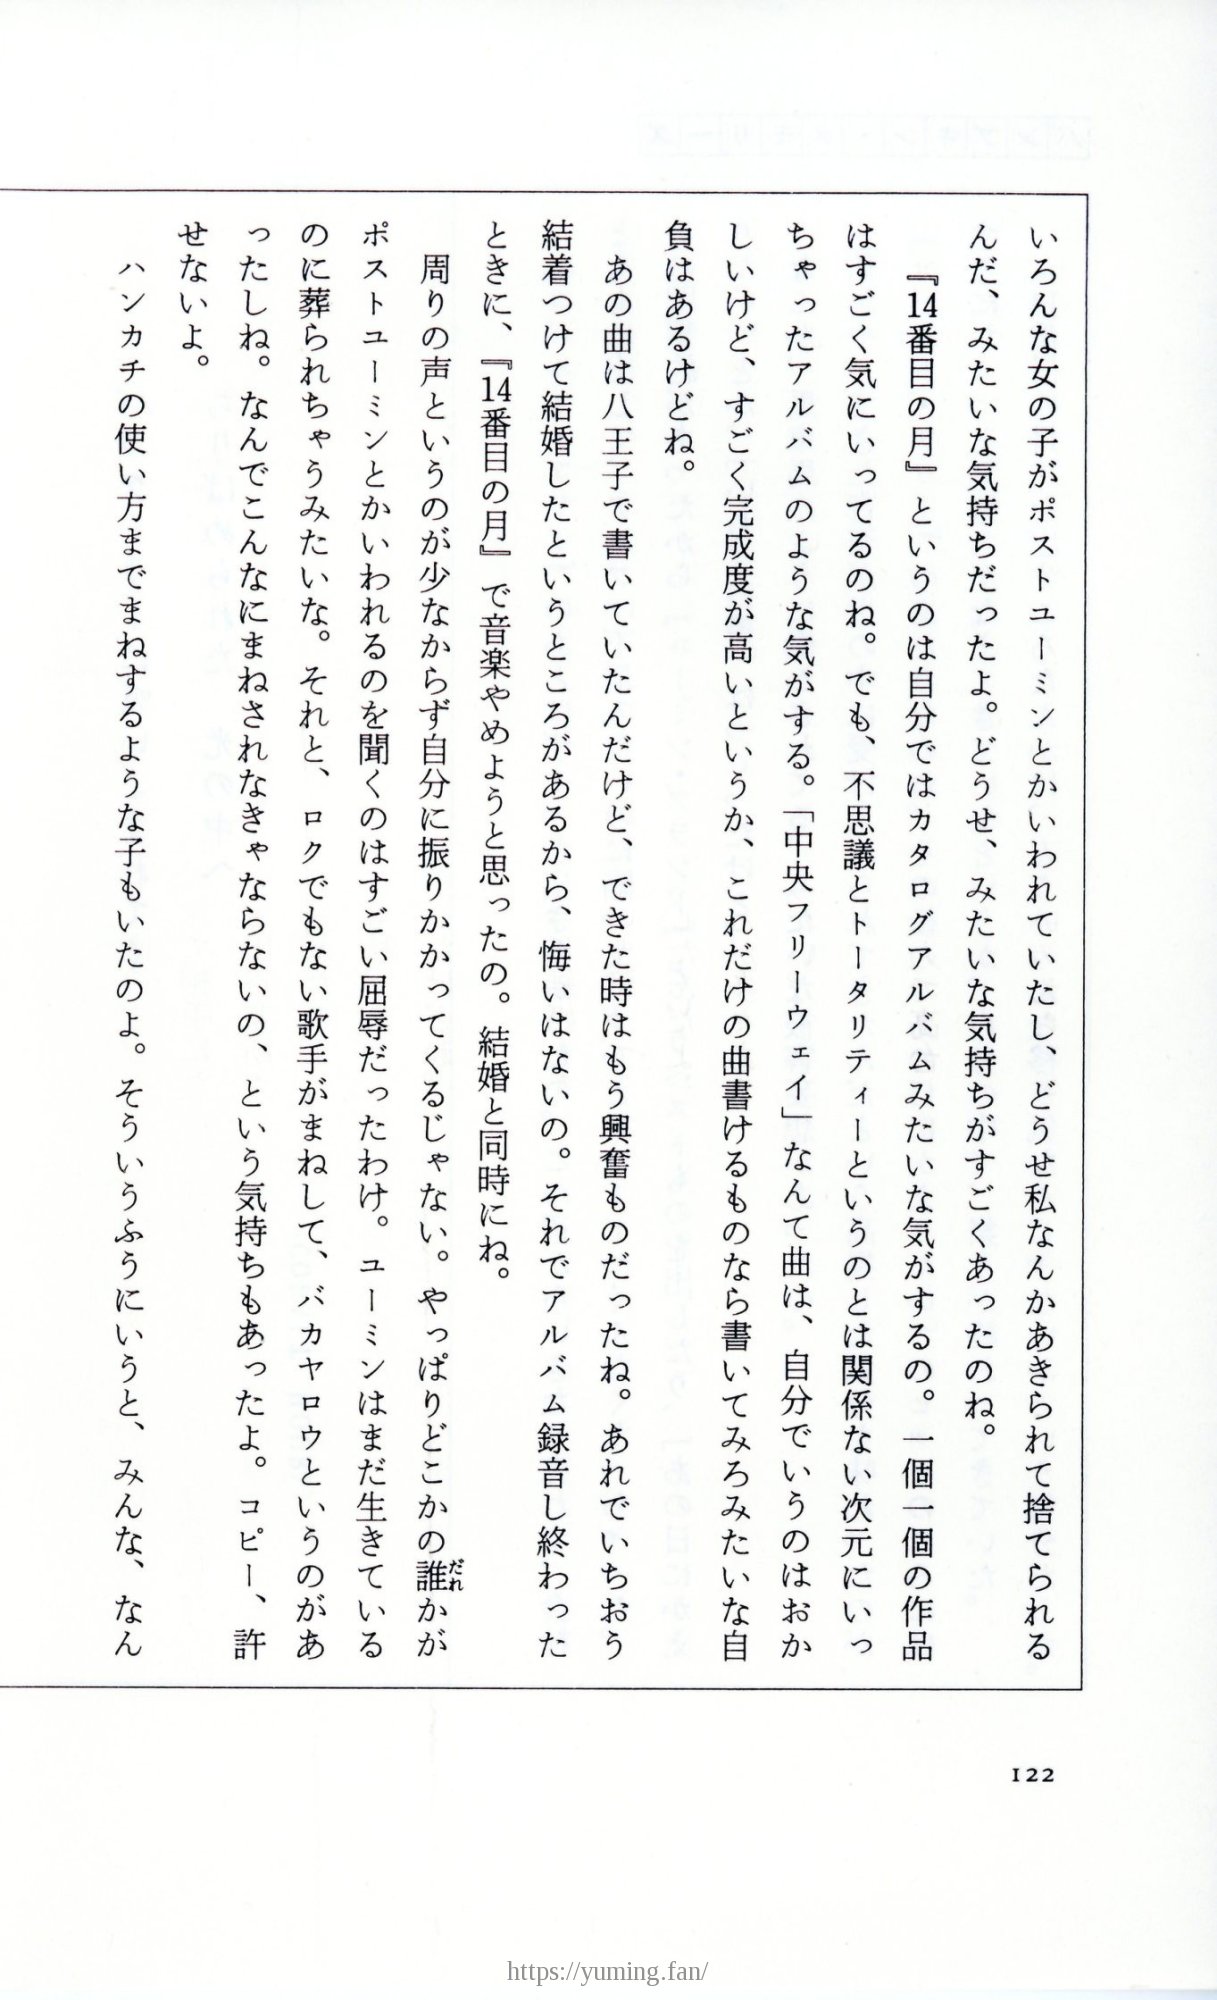 いろんな女の子がポストユーミンとかいわれていたし、どうせ私なんかあきられて捨てられる
んだ、みたいな気持ちだったよ。どうせ、みたいな気持ちがすごくあったのね。
『14番目の月』というのは自分ではカタログアルバムみたいな気がするの。一個一個の作品
はすごく気にいってるのね。でも、不思議とトータリティーというのとは関係ない次元にいっ
ちゃったアルバムのような気がする。「中央フリーウェイ」なんて曲は、自分でいうのはおか
しいけど、すごく完成度が高いというか、これだけの曲書けるものなら書いてみろみたいな自
負はあるけどね。
あの曲は八王子で書いていたんだけど、できた時はもう興奮ものだったね。あれでいちおう
結着つけて結婚したというところがあるから、悔いはないの。それでアルバム録音し終わった
ときに、『14番目の月』で音楽やめようと思ったの。結婚と同時にね。
周りの声というのが少なからず自分に振りかかってくるじゃない。やっぱりどこかの誰かが
だれ
ポストユーミンとかいわれるのを聞くのはすごい屈辱だったわけ。ユーミンはまだ生きている
のに葬られちゃうみたいな。それと、ロクでもない歌手がまねして、バカヤロウというのがあ
ったしね。なんでこんなにまねされなきゃならないの、という気持ちもあったよ。コピー、許
せないよ。
ハンカチの使い方までまねするような子もいたのよ。そういうふうにいうと、みんな、なん
122
https://yuming.fan/